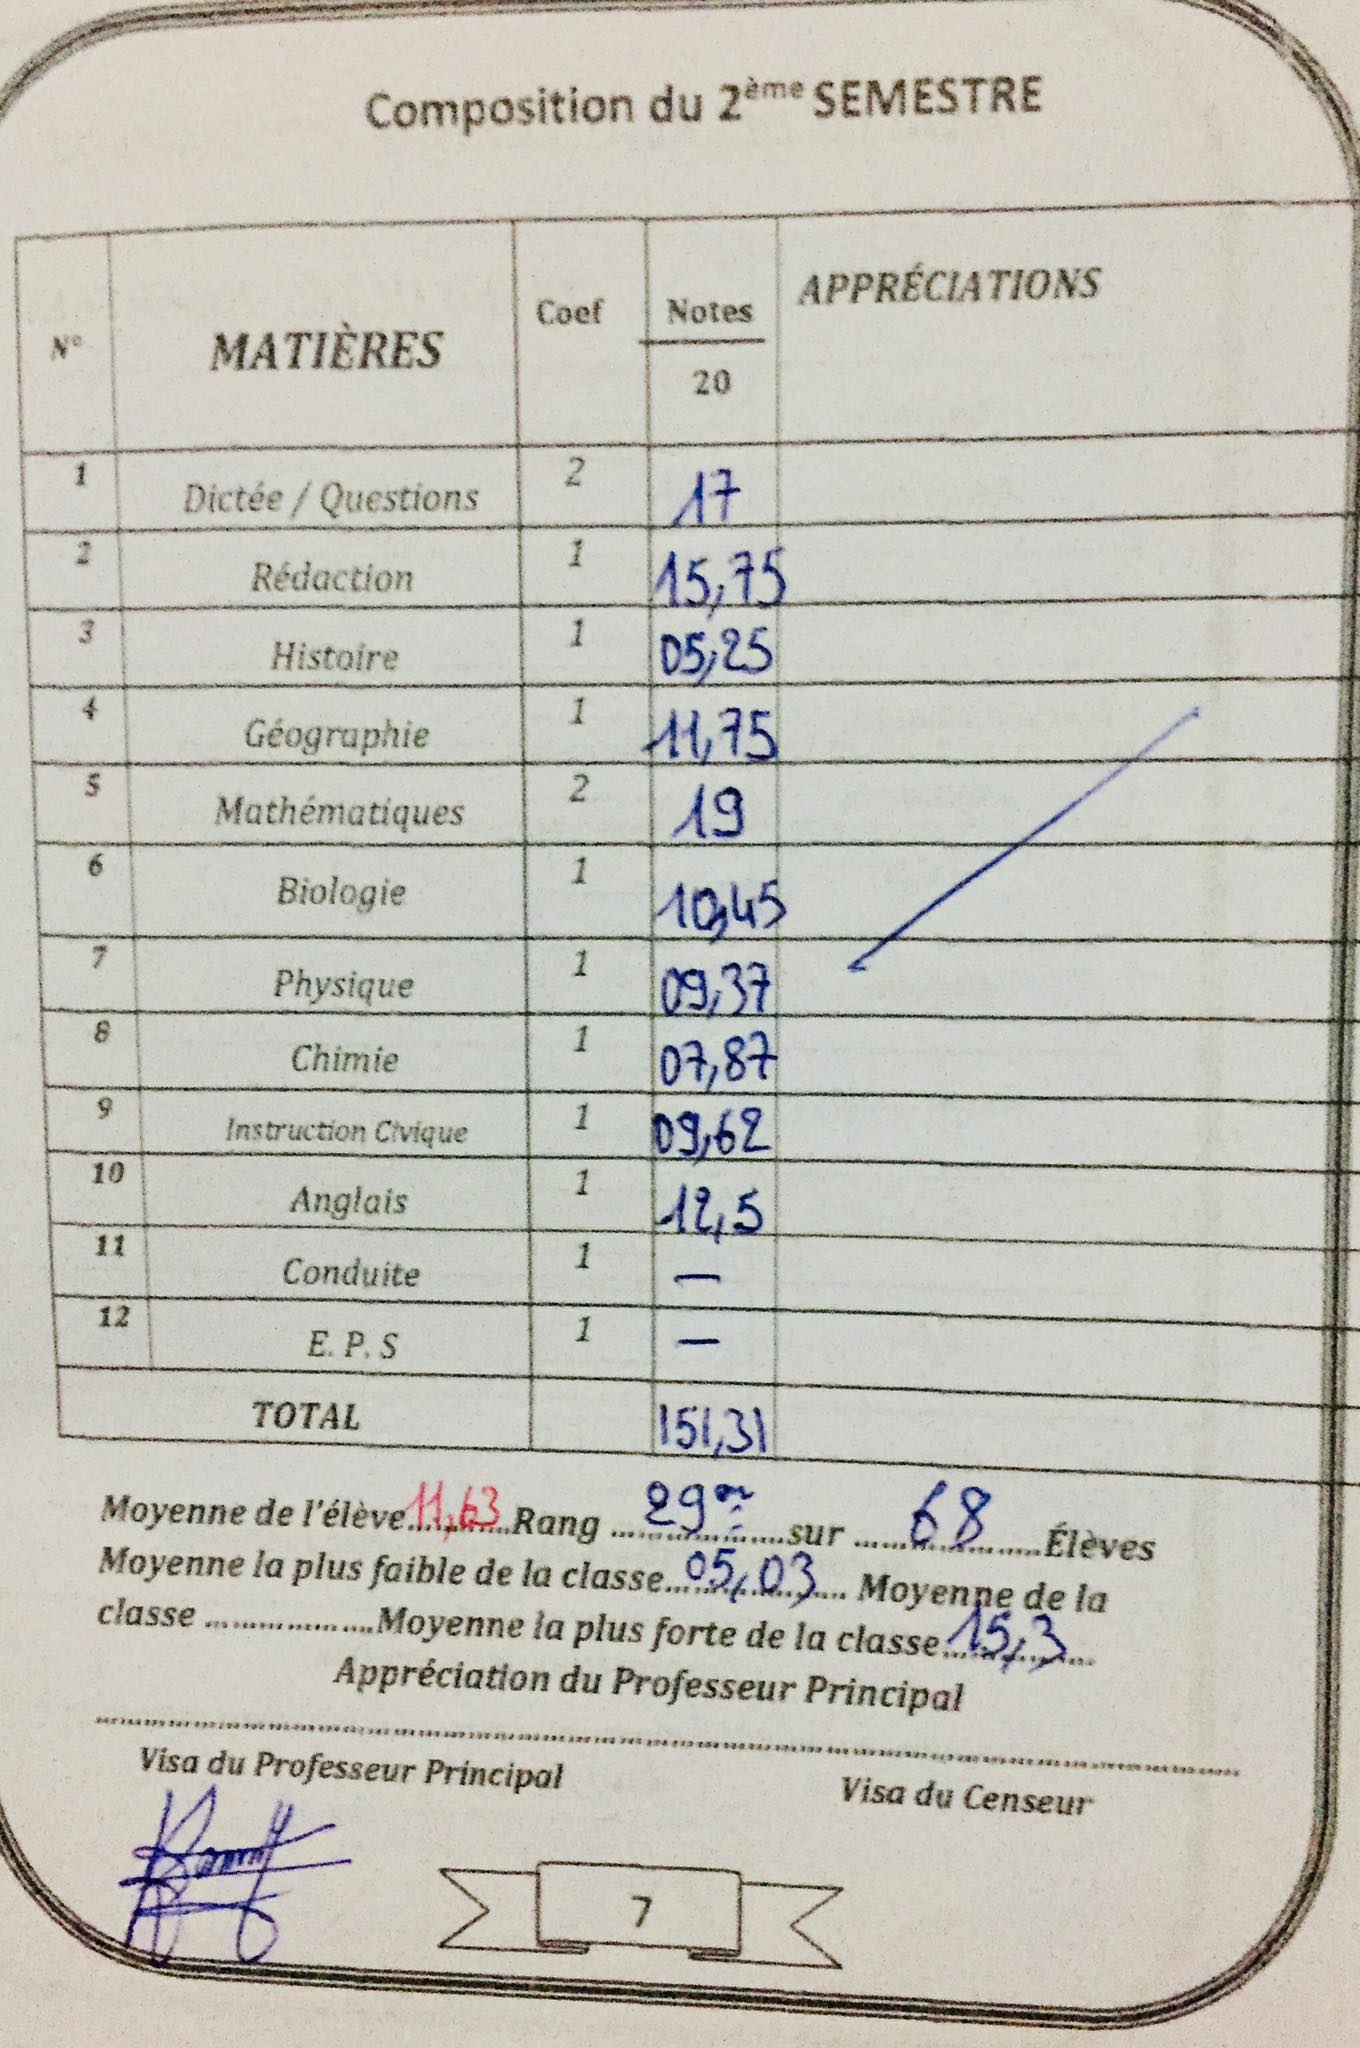 Composition du 2ème SEMESTRE
N° MATIÈRES Coef Notes APPRÉCIATIONS
20
1 Dictée / Questions 2 17
2 Rédaction 1 15,75
3 Histoire 1 05,25
4 Géographie 1 11,75
5 Mathématiques 2 19
6 Biologie 1 10,45
7 Physique 1 09,37
8 Chimie 1 07,87
9 Instruction Civique 1 09,62
10 Anglais 1 12,5
11 Conduite 1 —
12 E. P. S 1 —
TOTAL 151,31
Moyenne de l'élève 11,63 Rang 29 sur 68 Élèves
Moyenne la plus faible de la classe 05,03 Moyenne de la
classe ........ Moyenne la plus forte de la classe 15,3
Appréciation du Professeur Principal
Visa du Professeur Principal Visa du Censeur
7